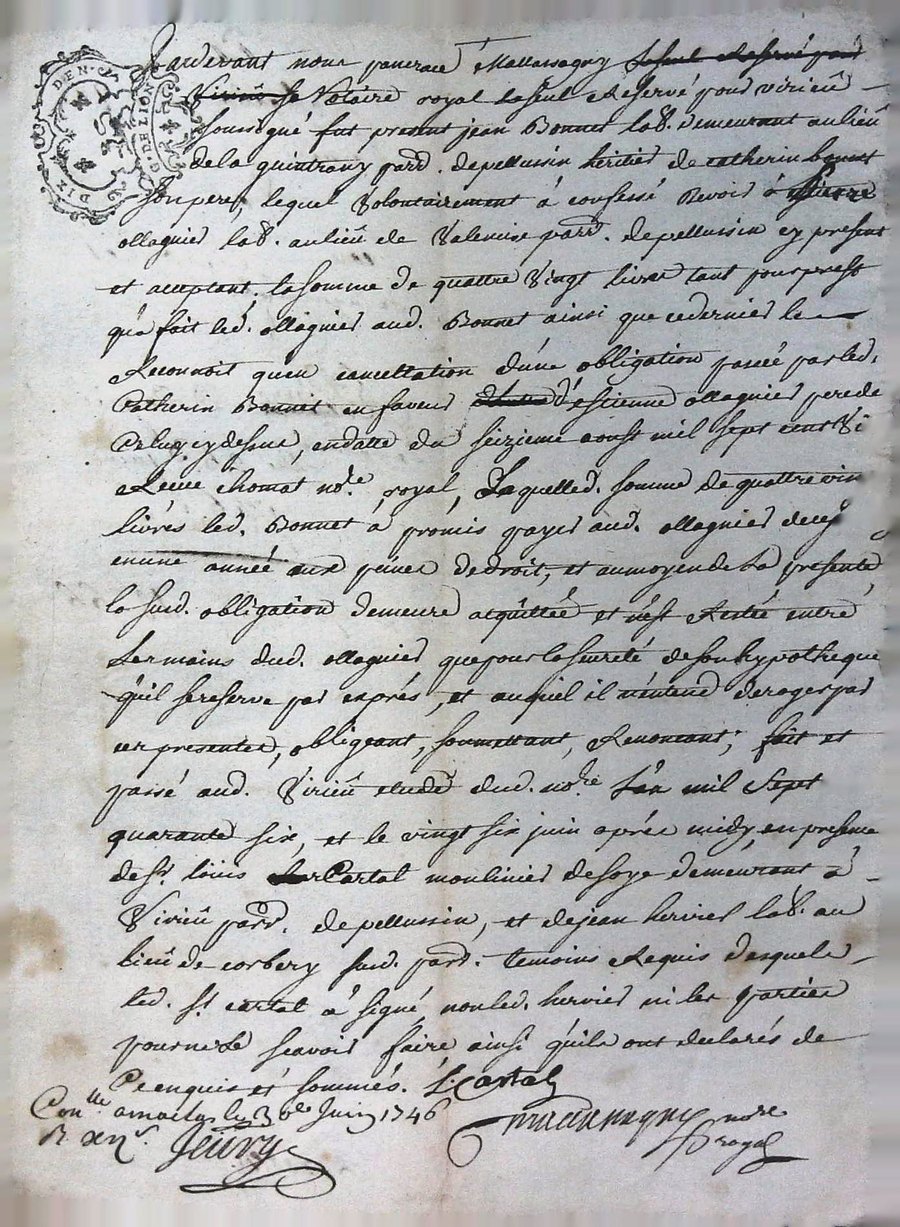 DIX DEN.
G. DE LION
Pardevant nous pancrace Mallassagny Le seul Reservé pour
Virieû Se Notaire royal Le seul Reservé pour virieû
soussigné fut present jean Bonnet lab. demeurant au lieu
de la quintrany parr. de pellussin heritier de catherin bonnet
son pere, lequel Volontairement à confessé devoir à pierre
ollagnier lab. au lieû de Valeuse parr. de pellussin cy present
et acceptant, la somme de quattre Vingt livres tant pour prest
qu'a fait led. ollagnier aud. Bonnet ainsi que ce dernier le
Reconnoit qu'en cancellation d'une obligation passée par led.
Catherin Bonnet en faveur d'estienne ollagnier pere de
Celuy cy dessus, en datte du seizieme aoust mil sept cent Vi
Receue chomat no.re royal, Laquelled. somme de quattre vin
livres led. Bonnet à promis payer aud. ollagnier decy
en une année aux peines de droit, et au moyen de La presente
la sud. obligation demeure acquittée et n'est Restée entre
Les mains dud. ollagnier que pour la sureté de son hypotheque
qu'il se reserve par exprés, et auquel il n'entend deroger par
ces presentes, obligeant, soumettant, Renoncant; fait et
passé aud. Virieû etude dud. no.re L'an mil Sept
quarante six, et le vingt six juin aprés midy, en presence
de Sr. loüis Cartal moulinier de soye demeurant à
Virieû parr. de pellussin, et de jean hervier lab. au
lieû de corbery sud. parr. temoins Requis desquels
led. Sr. cartal à signé, non led. hervier ni les parties
pour ne le scavoir faire ainsi qu'ils ont declarés de
Ce enquis et sommés. L. Cartal
Con.lle a maclas le 30e Juin 1746
Jeury
Mallassagny no.re
royal